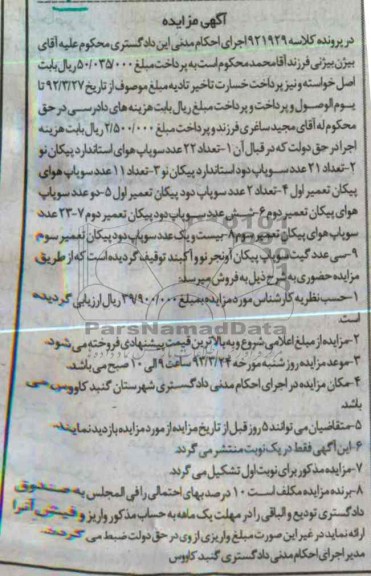 آگهی مزایده
در پرونده کلاسه ۹۲۱۹۲۹ اجرای احکام مدنی این دادگستری محکوم علیه آقای
بیژن بیژنی فرزند آقامحمد محکوم است به پرداخت مبلغ ۵۰/۰۳۵/۰۰۰ ریال بابت
اصل خواسته و نیز پرداخت خسارت تاخیر تادیه مبلغ موصوف از تاریخ ۹۲/۳/۲۷ تا
یوم الوصول و پرداخت و پرداخت مبلغ ریال بابت هزینه های دادرسی در حق
محکوم له آقای مجید ساغری فرزند و پرداخت مبلغ ۲/۵۰۰/۰۰۰ ریال بابت هزینه
اجرا در حق دولت که در قبال آن ۱-تعداد ۲۲ عدد سوپاپ هوای استاندارد پیکان نو
۲-تعداد ۲۱ عدد سوپاپ دود استاندارد پیکان نو ۳-تعداد ۱۱ عدد سوپاپ هوای
پیکان تعمیر اول ۴-تعداد ۲ عدد سوپاپ دود پیکان تعمیر اول ۵-دو عدد سوپاپ
هوای پیکان تعمیر دوم ۶-شش عدد سوپاپ دود پیکان تعمیر دوم ۷-۲۳ عدد
سوپاپ هوای پیکان تعمیر سوم ۸-بیست و یک عدد سوپاپ دود پیکان تعمیر سوم
۹-سی عدد گیت سوپاپ پیکان آونجر نو و آکبند توقیف گردیده است که از طریق
مزایده حضوری به شرح ذیل به فروش میرسد.
۱-حسب نظریه کارشناس مورد مزایده به مبلغ ۳۹/۹۰۰/۰۰۰ ریال ارزیابی گردیده
است.
ParsNamadData
۲-مزایده از مبلغ اعلامی شروع و به بالاترین قیمت پیشنهادی فروخته می شود.
۳-موعد مزایده روز شنبه مورخه ۹۳/۳/۲۴ ساعت ۹ الی ۱۰ صبح می باشد.
۴-مکان مزایده در اجرای احکام مدنی دادگستری شهرستان گنبد کاووس می
باشد.
۵-متقاضیان می توانند ۵ روز قبل از تاریخ مزایده از مورد مزایده بازدید نمایند.
۶-این آگهی فقط در یک نوبت منتشر می گردد.
۷-مزایده مذکور برای نوبت اول تشکیل می گردد.
۸-برنده مزایده مکلف است ۱۰ درصد بهای احتمالی را فی المجلس به صندوق
دادگستری تودیع و الباقی را در مهلت یک ماهه به حساب مذکور واریز و فیش آنرا
ارائه نماید در غیر این صورت مبلغ واریزی از وی در حق دولت ضبط می گردد.
مدیر اجرای احکام مدنی دادگستری گنبد کاووس